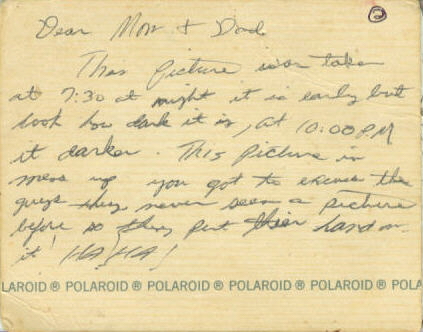 ②
Dear Mom + Dad
This picture was taken
at 7:30 at night it is early but
look how dark it is, at 10:00 PM
it darker. This picture is
mess up you got to excuse the
guys they never seen a picture
before so they put their hand on
it! HA! HA!
LAROID ® POLAROID ® POLAROID ® POLAROID ® POLAROID ® POLA